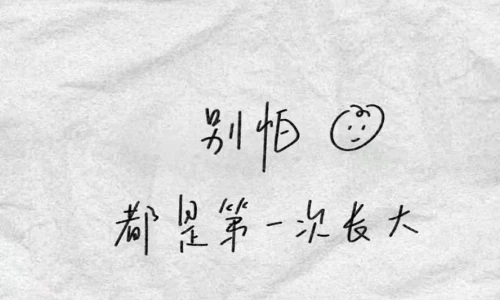 别怕
都是第一次长大